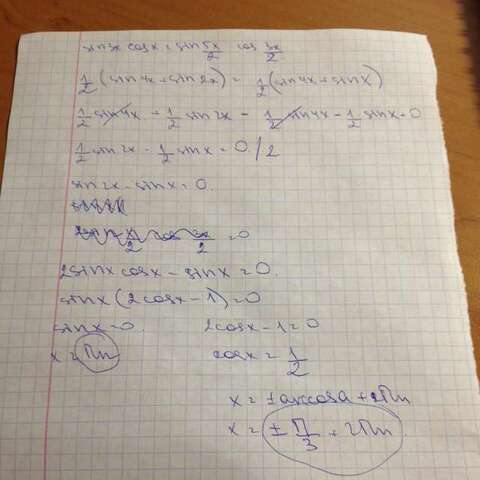 sin3x cosx = sin 5x/2 cos 3x/2
1/2 (sin4x + sin2x) = 1/2 (sin4x + sinx)
1/2 sin4x + 1/2 sin2x - 1/2 sin4x - 1/2 sinx = 0
1/2 sin2x - 1/2 sinx = 0 /2
sin2x - sinx = 0.
= 0
2sinx cosx - sinx = 0.
sinx (2cosx - 1) = 0
sinx = 0. 2cosx - 1 = 0
x = Пn cosx = 1/2
x = ± arccos a + 2Пn
x = ± П/3 + 2Пn.